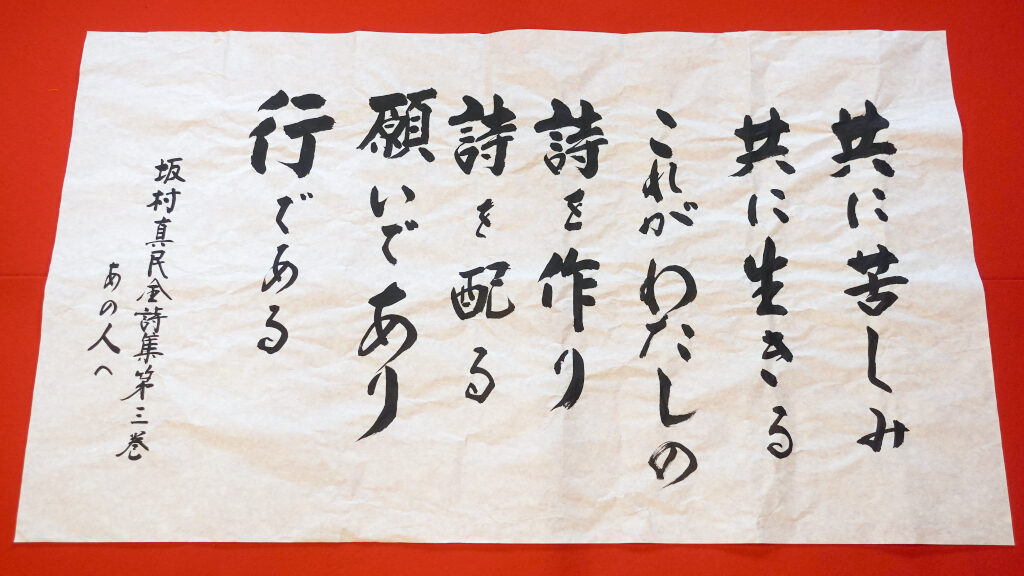 共に苦しみ
共に生きる
これがわたしの
詩を作り
詩を配る
願いであり
行である
坂村真民全詩集第三巻
あの人へ